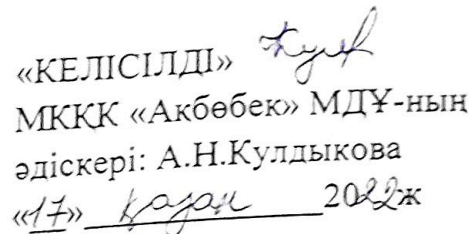 «КЕЛІСІЛДІ»
МКҚК «Акбөбек» МДҰ-ның
әдіскері: А.Н.Кулдыкова
«17» қазан 2022ж